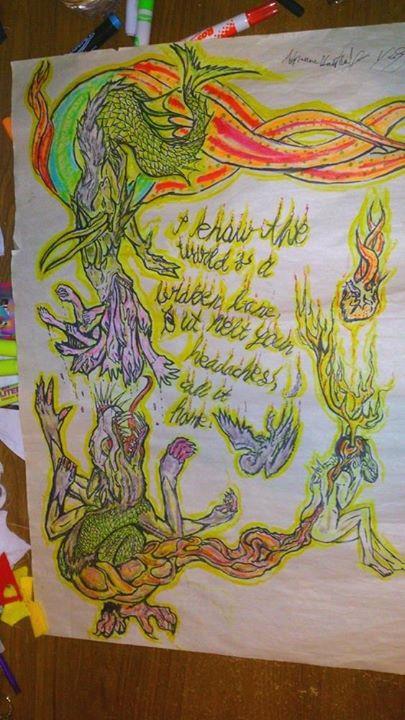 I know the
world's a
broken bone,
But melt your
headaches,
call it
home.